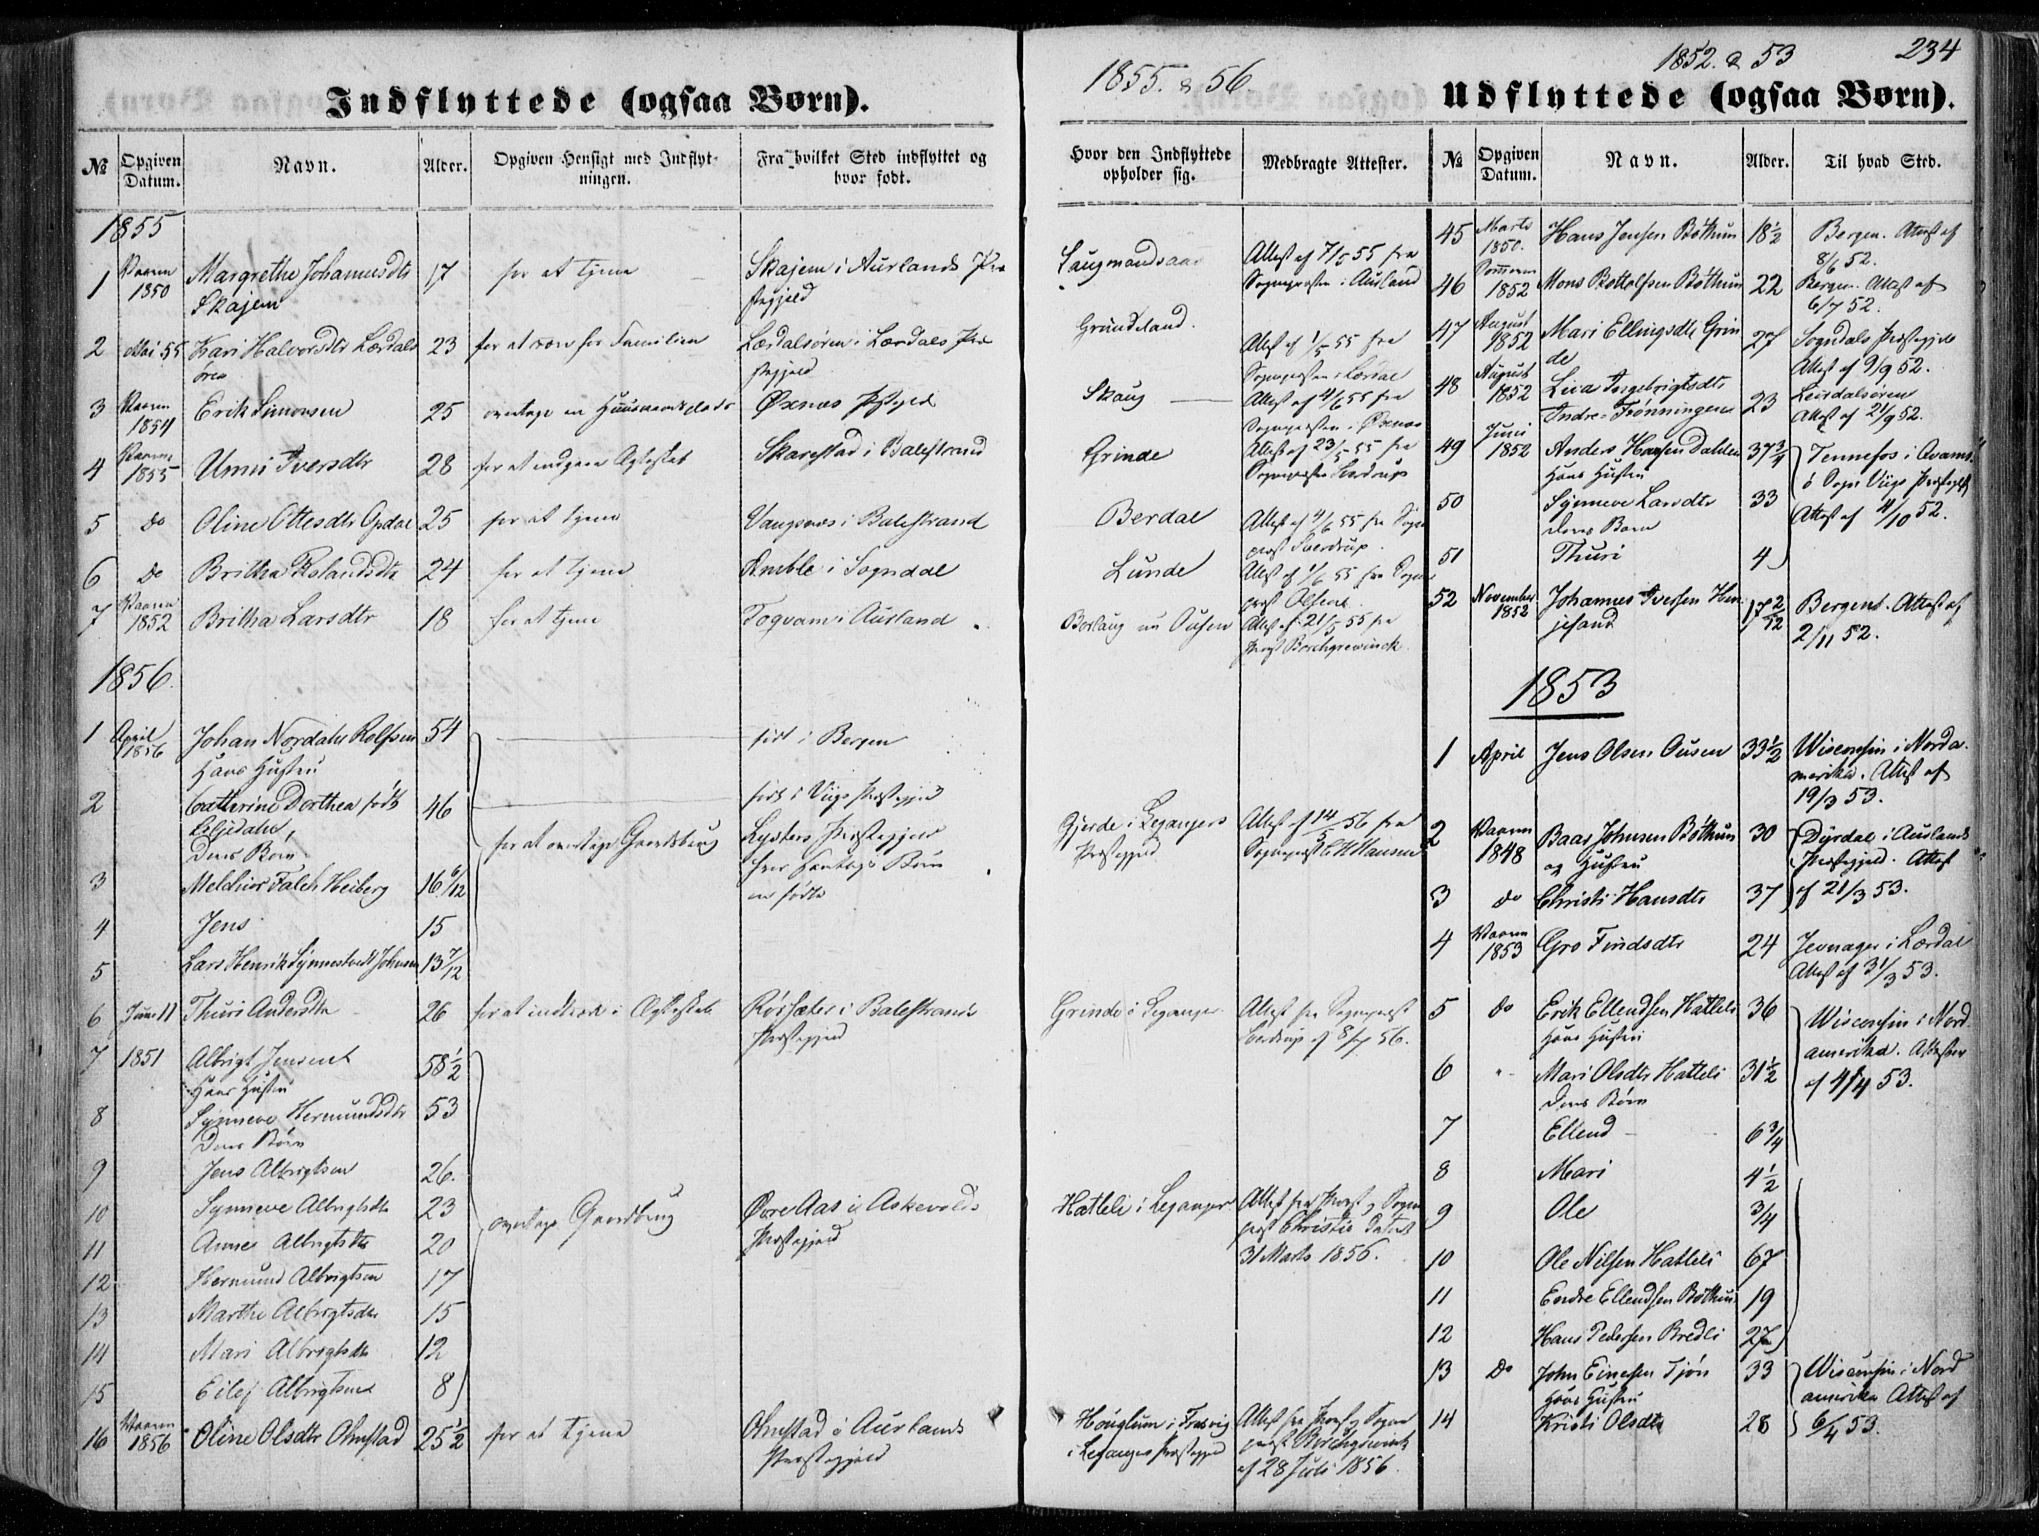 1855. & 56
1852. & 53
234
Indflyttede (ogsaa Børn).
№
Opgiven Datum.
Navn.
Alder.
Opgiven Hensigt med Indflytningen.
Fra hvilket Sted indflyttet og hvor født.
Hvor den Indflyttede opholder sig.
Medbragte Attester.
1855
1 Vaaren 1850 Margrethe Johannesdtr Skajem 17 for at tjene Skajem i Aurlands Præstegjeld Laugmandsaas Attest af 7/5 55 fra Sognepræsten i Aurland
2 Mai 55 Kari Halvorsdtr Lærdalsøren 23 for at være hos Familien Lærdalsøren i Lærdals Præstegjeld Grundeland. Attest af 1/5 55 fra Sognepræsten i Lærdal
3 Vaaren 1854 Erik Simonsen 25 overtage en Huusmandsplads Øxnæs Præstegjeld Skaug Attest af 4/6 55 fra Sognepræsten i Øxnæs
4 Vaaren 1855 Unni Iversdtr 28 for at indgaae Ægteskab Skarestad i Balestrand Grinde Attest af 23/5 55 fra Sognepræsten Sverdrup
5 do Oline Ottesdtr Opdal 25 for at tjene Vangsnæs i Balestrand Berdal Attest af 4/6 55 fra Sognepræst Sverdrup.
6 do Britha Rolandsdtr 24 for at tjene Amble i Sogndal Lunde Attest af 1/6 55 fra Sognepræst
7 Vaaren 1852 Britha Larsdtr 18 for at tjene i Aurland Attest af 21/5 55 fra Præst Borchgrewinck
1856.
1 April 1856 Johan Nordahl Rolfsen 54 født i Bergen
Hans Hustru
2 Catherine Dorthea født 46 født i Viigs Præstegjeld
Deres Børn
for at overtage Gaardsbrug
Lysters Præstegjeld hvor Børn ere fødte
Gjerde i Leganger Præstegjeld
Attest af 14/5 56 fra Sognepræst Hansen
3 Melchior Falch Heiberg 16 6/12
4 Jens 15
5 Lars Henrik Synnestvedt Johnsen 13 7/12
6 Juni 11 Thuri Andersdtr 26 for at indtræde i Ægteskab i Balestrands Præstegjeld Grinde i Leganger Attest fra Sognepræst Sverdrup af 8/7 56.
7 1851 Albrigt Jensen 58 1/2
Hans Hustru
8 Synneve Hermundsdtr 53
Deres Børn
9 Jens Albrigtsen 26.
10 Synneve Albrigtsdtr 23 overtage Gaardbrug Øvre Aas i Askevolds Præstegjeld Hatleli i Leganger Attest fra Præst og Sognepræst Christie Datert 31 Marts 1856.
11 Anne Albrigtsdtr 20
12 Hermund Albrigtsen 17
13 Marthe Albrigtsdtr 15
14 Mari Albrigtsdtr 12
15 Eilef Albrigtsen 8
16 Vaaren 1856 Oline Olsdtr Olmstad 25 1/2 for at tjene Olmstad i Aurlands Præstegjeld Houglum i Fresvig i Leganger Præstegjeld Attest fra Præst og Sognepræst Borchgrewink af 28 Juli 1856.
Udflyttede (ogsaa Børn).
№
Opgiven Datum.
Navn.
Alder.
Til hvad Sted.
45 Marts 1850. Hans Jensen Bøthun 18 1/2 Bergen. Attest af 8/6 52.
46 Sommeren 1852 Mons Bottolfsen Bøthun 22 Bergen. Attest af 6/7 52.
47 August 1852 Mari Ellingsdtr Grinde 27 Sogndals Præstegjeld Attest af 9/9 52.
48 August 1852 Ingebrigtsdtr Indre-Frønningen 23 Leirdalsøren Attest af 21/9 52.
49 Juni 1852 Anders Hansen Dahlen 37 3/4 Tennefos i Qvamsø Sogn Viigs Præstegjeld
Hans Hustru
50 Synneve Larsdtr 33 Attest af 11/10 52.
Deres Barn
51 Thuri 4
52 November 1852 Johannes Iversen Henjesand 17 2/12 Bergen. Attest af 2/11 52.
1853
1 April Jens Olsen Ousen 33 1/2 Wisconsin i Nordamerika. Attest af 19/3 53.
2 Vaaren 1848 Baar Johnsen Bøthun 30 Dyrdal i Aurlands Præstegjeld. Attest
og Hustru
3 do Christi Hansdtr 37 af 21/3 53.
4 Vaaren 1853 Gro Findsdtr 24 Jevnager i Lærdal Attest af 31/3 53.
5 do Erik Ellendsen Hatleli 36 Wisconsin i Nordamerika. Attester af 4/4 53.
Hans Hustru
6 Mari Olsdtr Hatleli 31 1/2
Deres Børn
7 Ellend 6 3/4
8 Mari 4 1/2
9 Ole 3/4
10 Ole Nilsen Hatleli 67
11 Endre Ellendsen Bøthun 19
12 Hans Pedersen Bredli 27
13 do John Einersen Tjøn 33 Wisconsin i Nordamerika Attest af
Hans Hustru
14 Kristi Olsdtr 28 6/4 53.